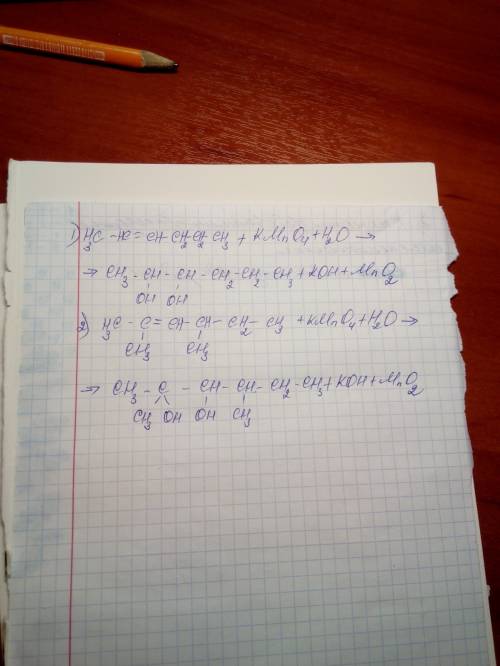 1) H₃C - HC = CH CH₂ CH₂ CH₃ + KMnO₄ + H₂O →
→ CH₃ - CH - CH - CH₂ - CH₂ - CH₃ + KOH + MnO₂
OH OH
2) H₃C - C = CH - CH - CH₂ - CH₃ + KMnO₄ + H₂O →
CH₃ CH₃
→ CH₃ - C - CH - CH - CH₂ - CH₃ + KOH + MnO₂
CH₃ OH OH CH₃